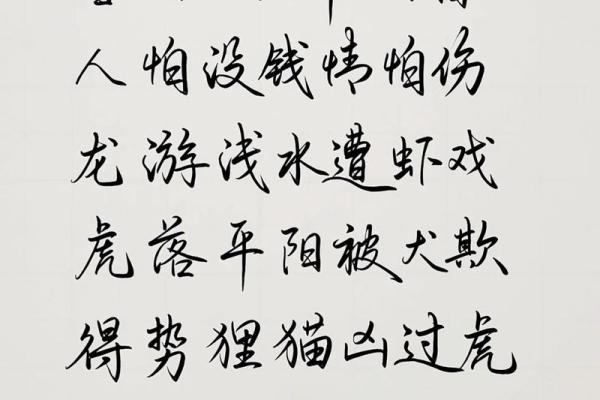 人怕没钱情怕伤
龙游浅水遭虾戏
虎落平阳被犬欺
得势狸猫凶过虎